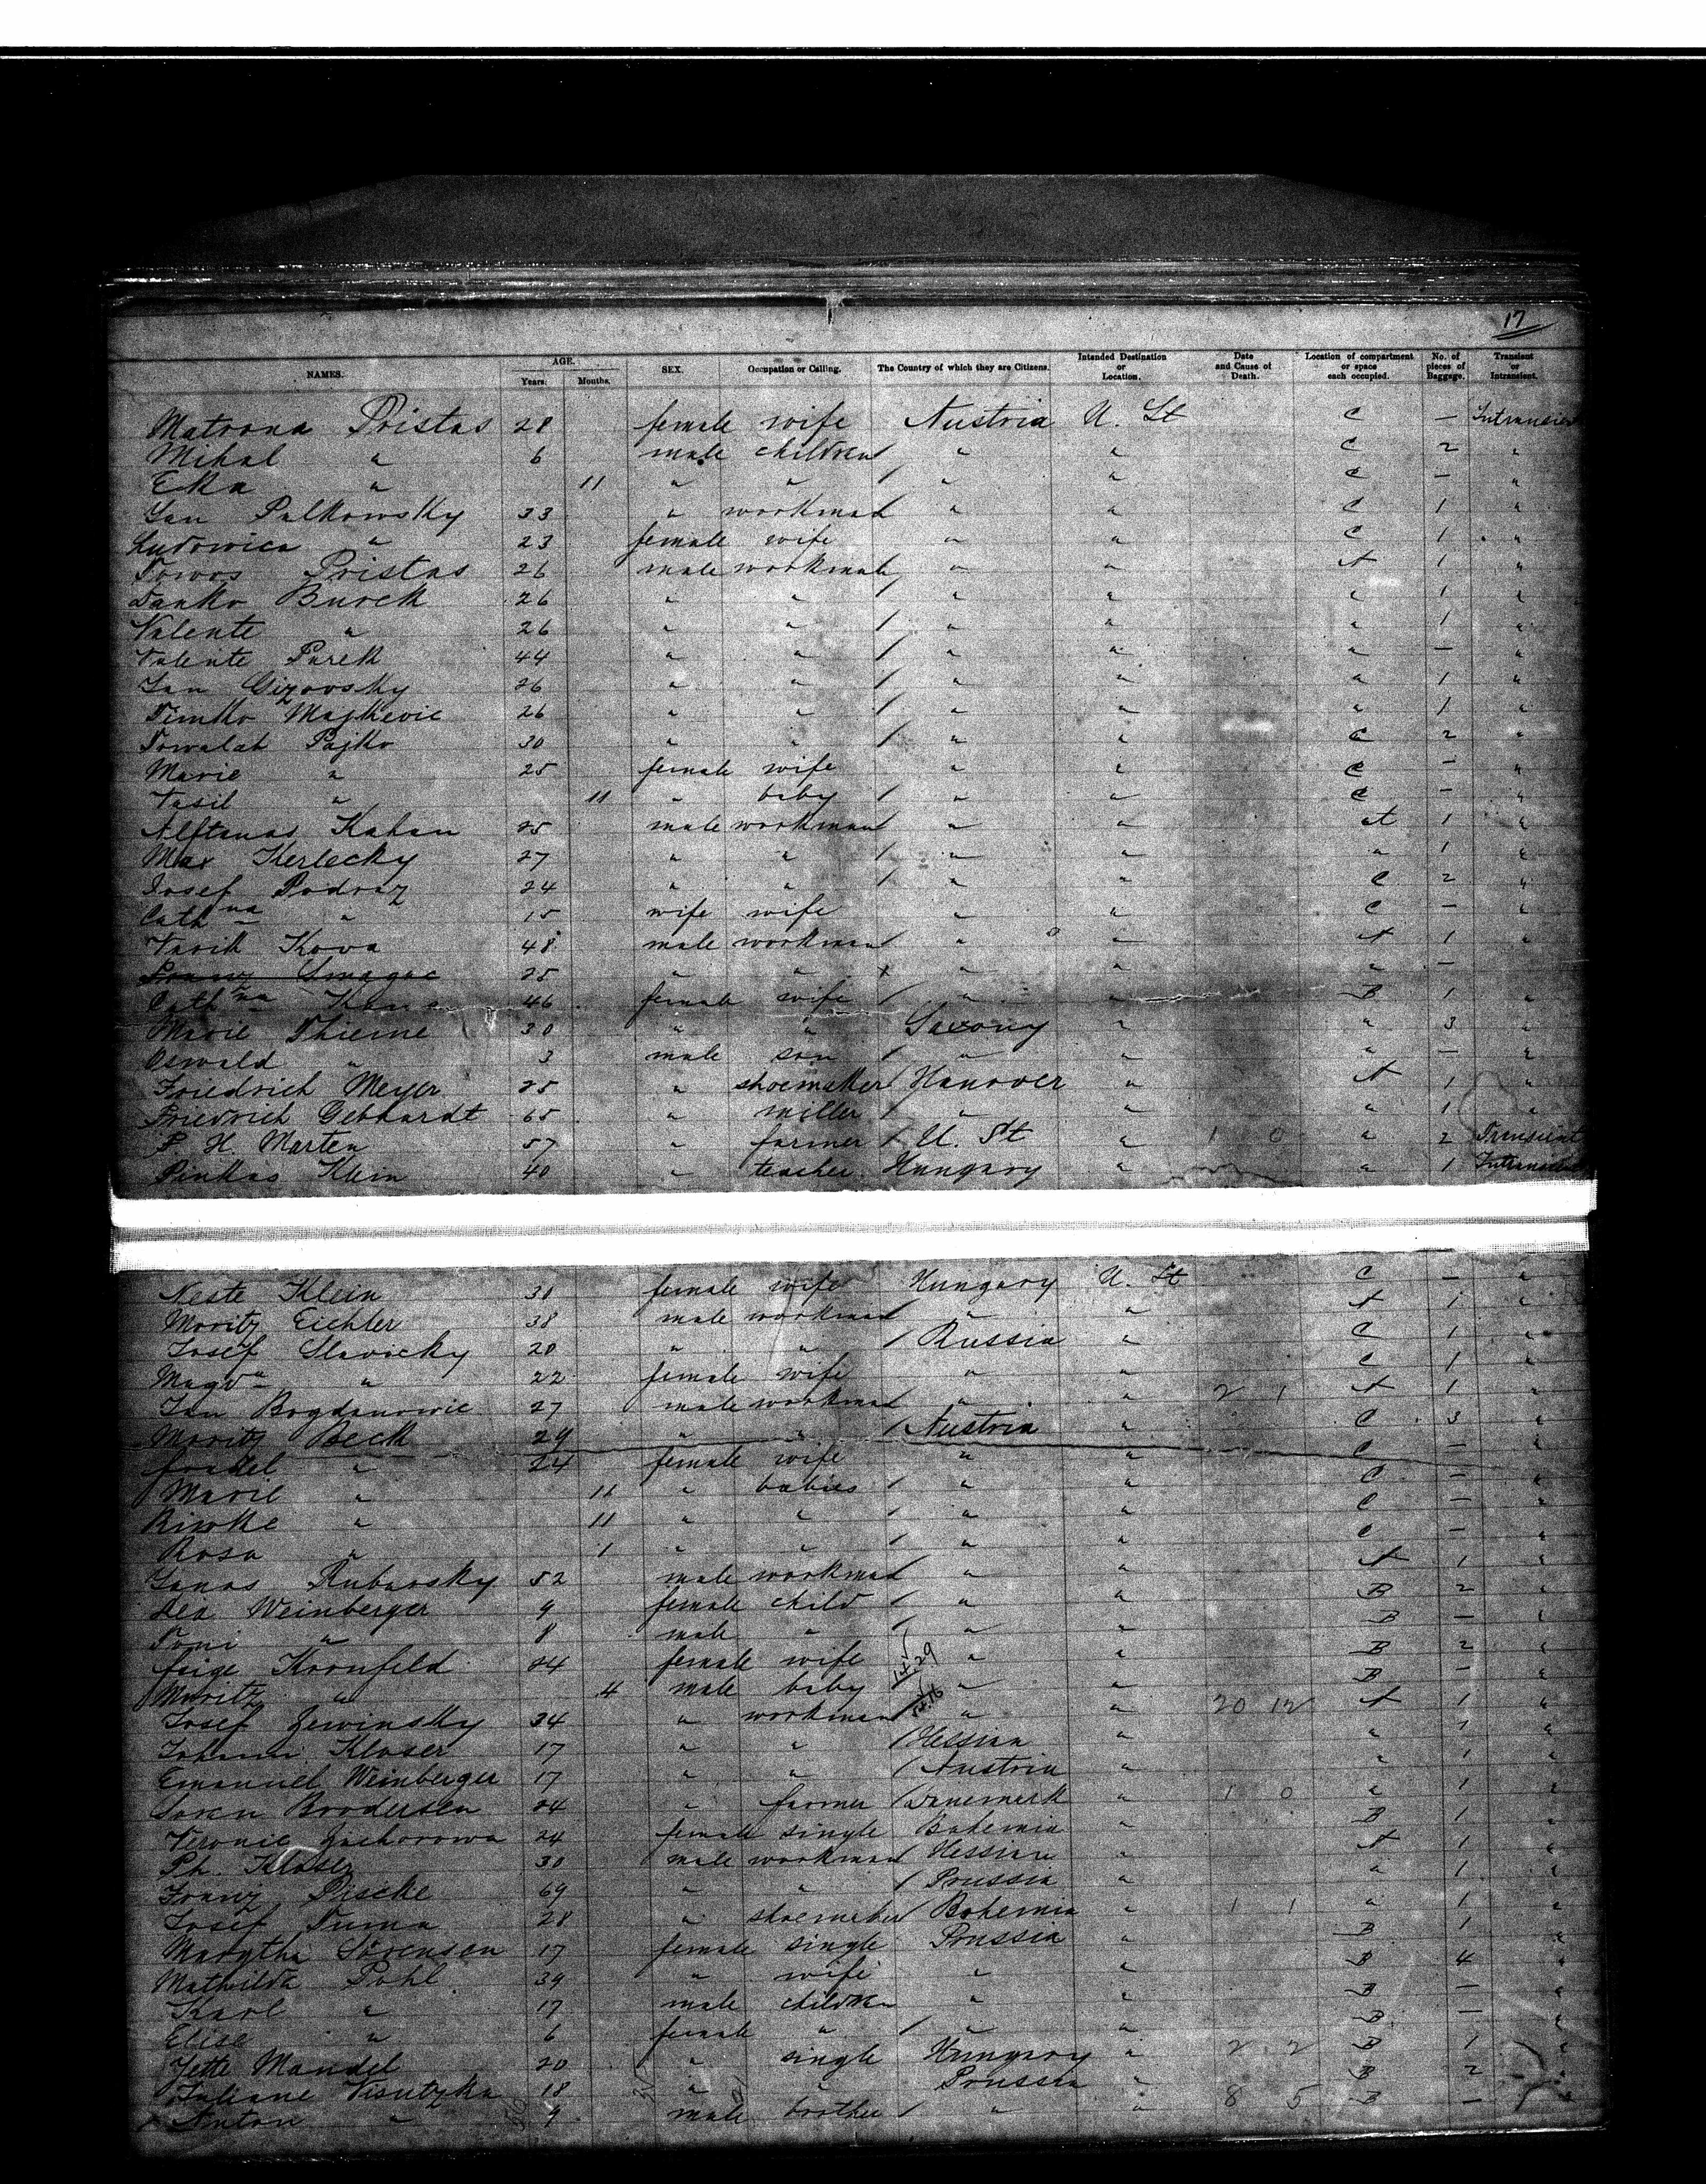 17
NAMES. AGE. Years. Months. SEX. Occupation or Calling. The Country of which they are Citizens. Intended Destination or Location. Date and Cause of Death. Location of compartment or space each occupied. No. of pieces of Baggage. Transient or Intransient.
Matrona Pristas 28 female wife Austria U. St C — Intransient
Mihal " 6 male children " " C 2 "
Eka " 11 " " " " C — "
Jan Palkowsky 33 " workman " " C 1 "
Ludowica " 23 female wife " " C 1 "
Towos Pristas 26 male workman " " A 1 "
Danko Burck 26 " " " " " 1 "
Valente " 26 " " " " " 1 "
Valente Purek 44 " " " " " — "
Jan Cizovsky 26 " " " " " 1 "
Timko Majkevic 26 " " " " " 1 "
Towalat Pajko 30 " " " " C 2 "
Marie " 25 female wife " " C — "
Vasil " 11 " baby " " C — "
Kahan 25 male workman " " A 1 "
Max Kerlecky 27 " " " " " 1 "
Josef Podraz 24 " " " " C 2 "
Cathna " 15 wife wife " " C — "
Vasik Kowa 48 male workman " " A 1 "
25 " " " " " —
Cathna 46 female wife " " B 1 "
Marie Thieme 30 " " Saxony " " 3 "
Oswald " 3 male son " " " — "
Friedrich Meyer 25 " shoemaker Hanover " A 1 "
Friedrich Gebhardt 65 " miller " " " 1 "
P. H. Marten 57 " farmer U. St " 1 0 " 2 Transient
Pinkas Klein 40 " teacher Hungary " " 1 Intransient
Neste Klein 31 female wife Hungary U. St C — "
Moritz Eichler 38 male workman " " A 1 "
Josef Slavicky 20 " " Russia " C 1 "
Magda " 22 female wife " " C 1 "
Jan Bogdanowic 27 male workman " " 2 1 A 1 "
Moritz Beck 29 " " Austria " C 3 "
" 24 female wife " " C — "
Marie " 11 " babies " " C — "
Riwke " 11 " " " " C — "
Rosa " 1 " " " " C — "
Janos Rubarsky 52 male workman " " A 1 "
Lea Weinberger 9 female child " " B 2 "
Toni " 8 male " " " B — "
Feige Kronfeld 24 female wife " " B 2 "
Moritz " 4 male baby " " B — "
Josef Zewinsky 34 " workman " " 20 12 A 1 "
Johann Kloser 17 " " Hessian " " 1 "
Emanuel Weinberger 17 " " Austria " " 1 "
Soren Brodersen 24 " farmer Danemark " 1 0 " 1 "
Veronic Zachorowa 24 female single Bohemia " B 1 "
Ph. Kloser 30 male workman Hessian " A 1 "
Franz Piscke 69 " " Prussia " " 1 "
Josef Tuma 28 " shoemaker Bohemia " 1 1 " 1 "
Margtha Sörensen 17 female single Prussia " B 1 "
Mathilda Pohl 39 " wife " " B 4 "
Karl " 17 male children " " B — "
Elise " 6 female " " " B — "
Jette Mandel 20 " single Hungary " 2 2 B 1 "
Juliane Visutzka 18 " " Prussia " B 2 "
Anton " 9 male brother " " 8 5 B — "